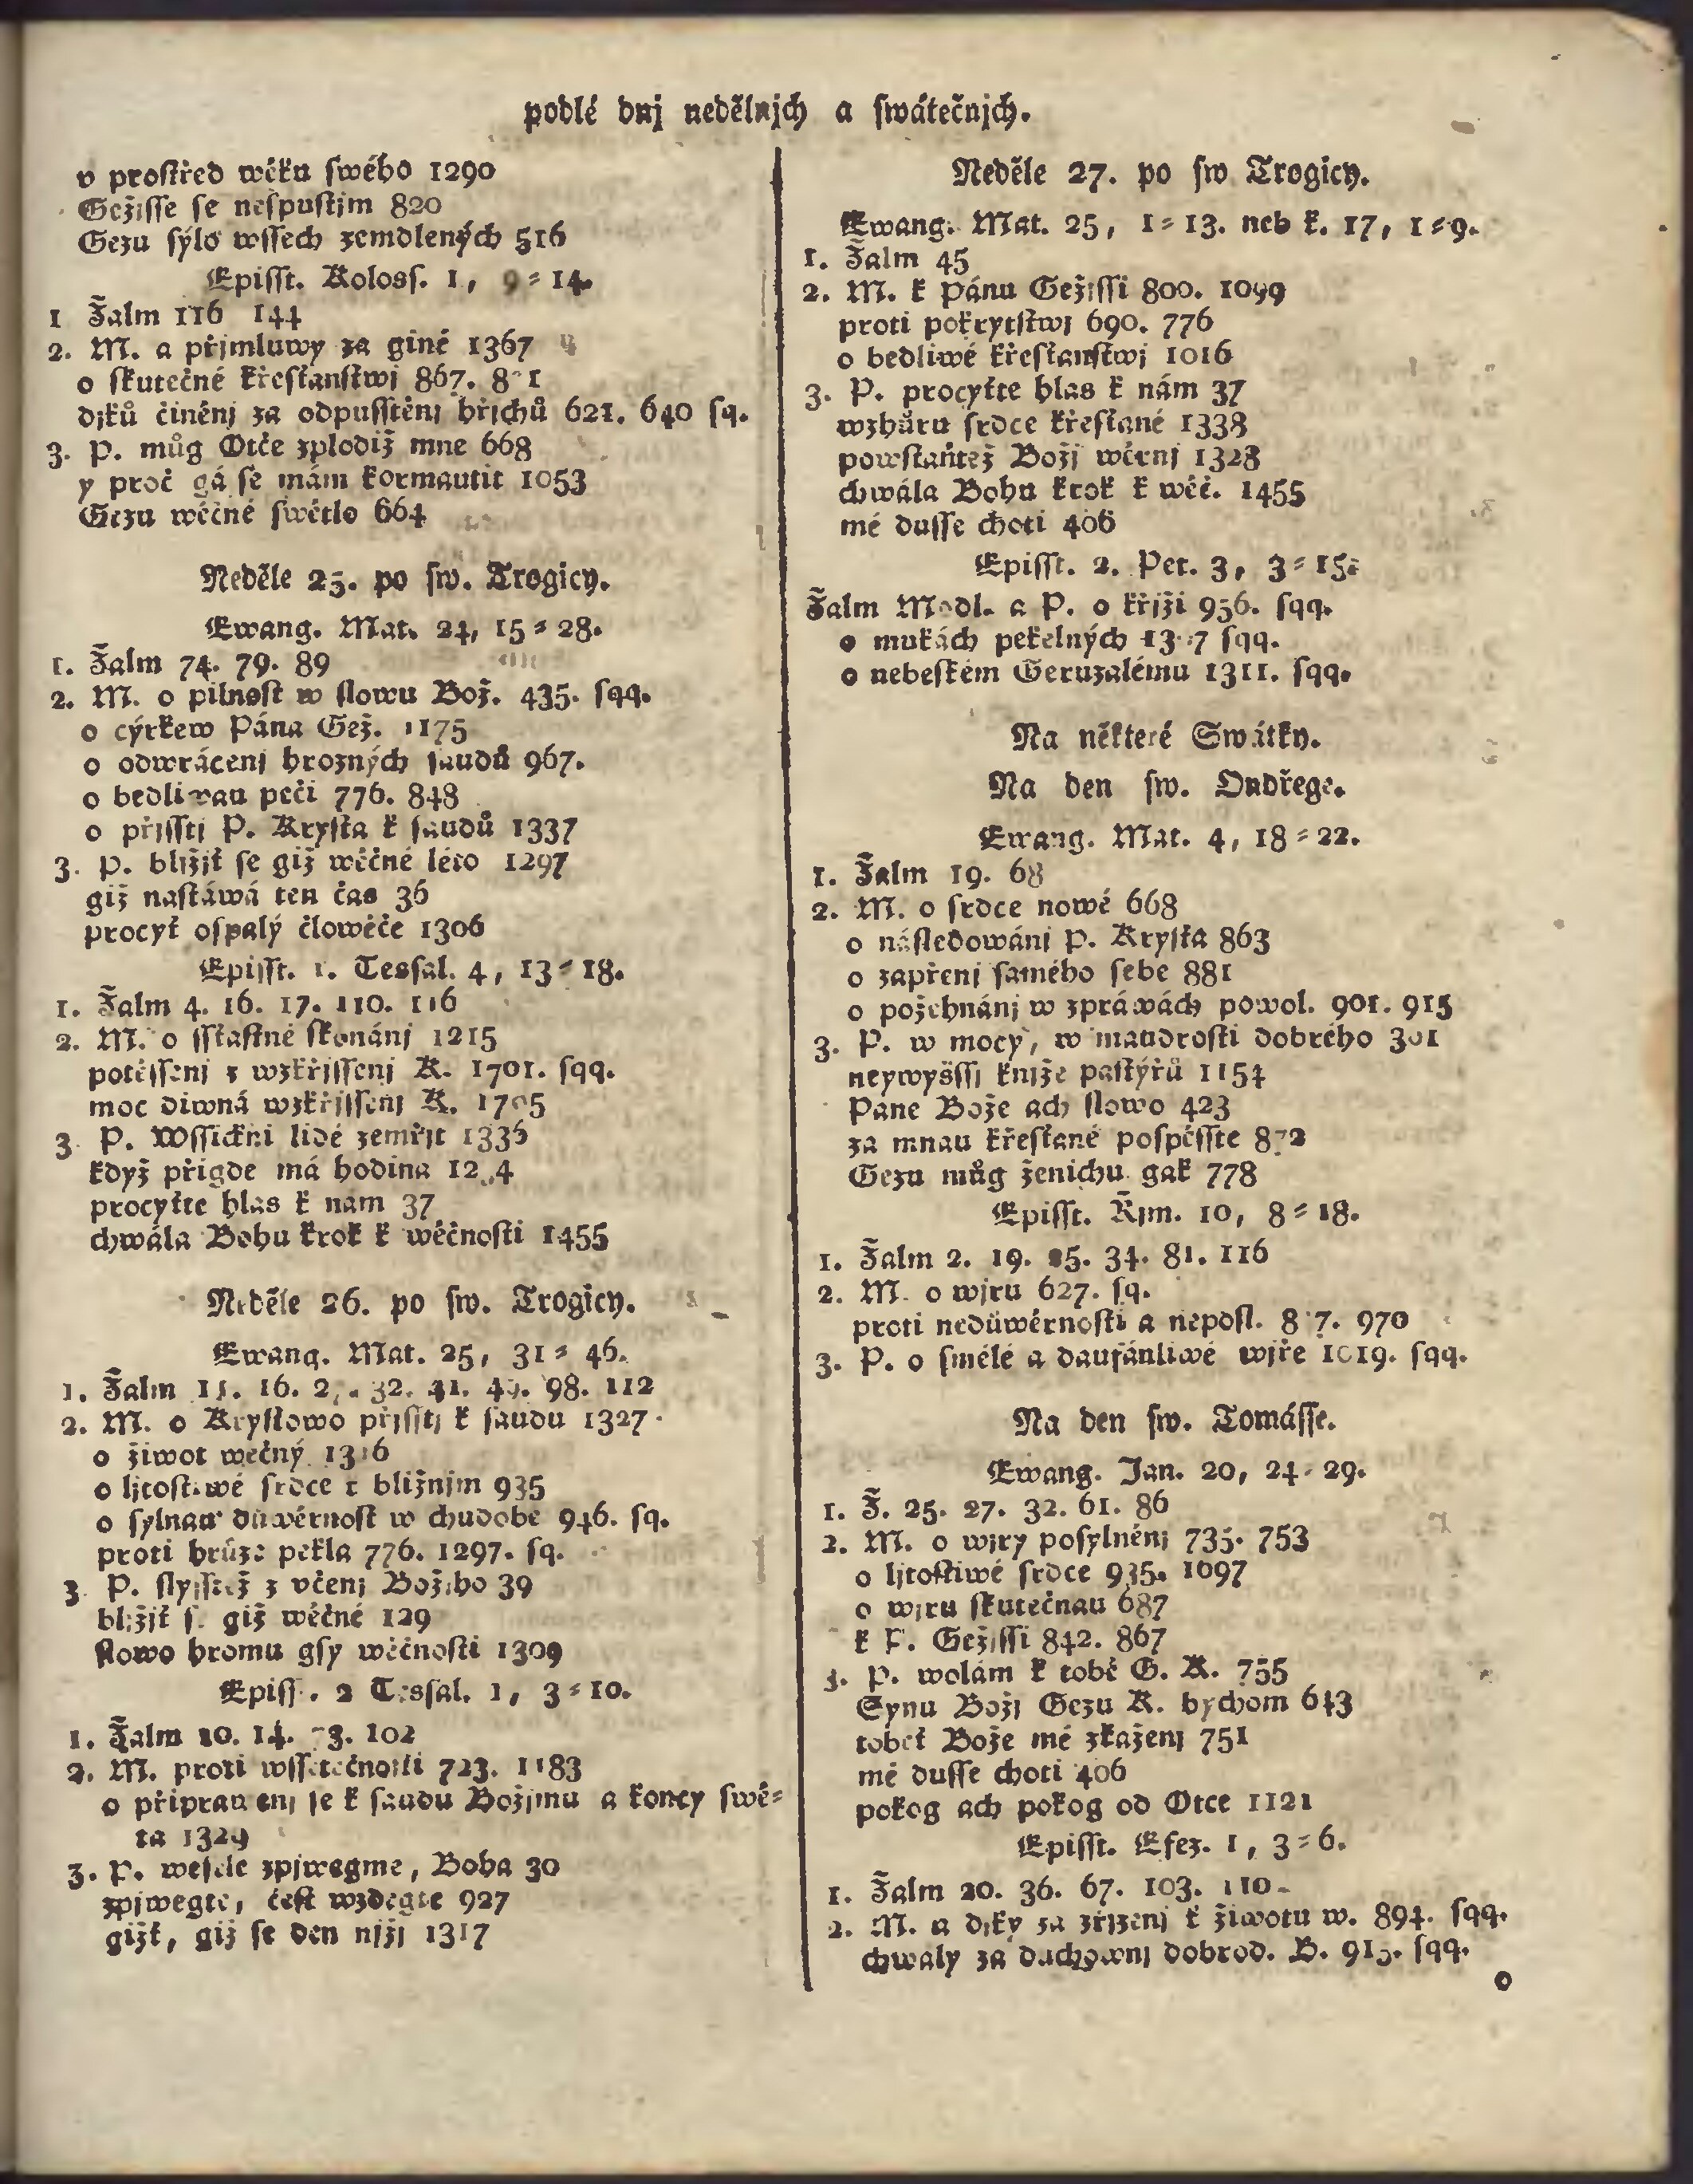 podlé dnj nedělnjch a swátečnjch.
v prostřed wěku swého 1290
Gežisse se nespustjm 820
Gezu sýlo wssech zemdlených 516
Episst. Koloss. 1, 9=14.
1 Žalm 116 144
2. M. a přjmluwy za giné 1367
o skutečné křesťanstwj 867.
djků činěnj za odpusstěnj hřjchů 621. 640 sq.
3. P. můg Otče zplodiž mne 668
y proč gá se mám kormautit 1053
Gezu wěčné swětlo 664
Neděle 25. po sw. Trogicy.
Ewang. Mat. 24, 15=28.
1. Žalm 74. 79. 89
2. M. o pilnost w slowu Bož. 435. sqq.
o cýrkew Pána Gež. 1175
o odwrácenj hrozných saudů 967.
o bedliwau peči 776. 848
o přjsstj P. Krysta k saudů 1337
3. P. bljžjť se giž wěčné léto 1297
giž nastáwá ten čas 36
procyť ospalý člowěče 1306
Episst. 1. Tessal. 4, 13=18.
1. Žalm 4. 16. 17. 110. 116
2. M. o ssťastné skonánj 1215
potěssenj z wzkřjssenj K. 1701. sqq.
moc diwná wzkřjssenj K. 1705
3. P. Wssickni lidé zemřjt 1336
když přigde má hodina
procyťte hlas k nam 37
chwála Bohu krok k wěčnosti 1455
Neděle 26. po sw. Trogicy.
Ewang. Mat. 25, 31=46.
1. Žalm 16. 32. 41. 98. 112
2. M. o Krystowo přjsstj k saudu 1327
o žiwot wečný 1316
o ljtostiwé srdce k bližnjm 935
o sylnau důwěrnost w chudobě 946. sq.
proti hrůze pekla 776. 1297. sq.
3. P. slyjsstež z včenj Božjho 39
bljžjť se giž wěčné 129
slowo hromu gsy wěčnosti 1309
Episst. 2 Tessal. 1, 3=10.
1. Žalm 10. 14. 73. 102
2. M. proti wssetečnosti 723. 1183
o připrawenj se k saudu Božjmu a koncy swě=
ta 1329
3. P. wesele zpjwegme, Boha 30
zpjwegte, čest wzdegte 927
gižť, giž se den njžj 1317
Neděle 27. po sw Trogicy.
Ewang. Mat. 25, 1=13. neb k. 17, 1=9.
1. Žalm 45
2. M. k Pánu Gežjssi 800. 1099
proti pokrytstwj 690. 776
o bedliwé křesťanstwj 1016
3. P. procyťte hlas k nám 37
wzhůru srdce křesťané 1338
powstaňtež Božj wěrnj 1328
chwála Bohu krok k wěč. 1455
mé dusse choti 406
Episst. 2. Pet. 3, 3=15.
Žalm Modl. a P. o křjži 956. sqq.
o mukách pekelných sqq.
o nebeském Geruzalému 1311. sqq.
Na některé Swátky.
Na den sw. Ondřege.
Ewang. Mat. 4, 18=22.
1. Žalm 19. 68
2. M. o srdce nowé 668
o následowánj P. Krysta 863
o zapřenj samého sebe 881
o požehnánj w zpráwách powol. 901. 915
3. P. w mocy, w maudrosti dobrého 301
neywyšssj knjže pastýřů 1154
Pane Bože ach slowo 423
za mnau křesťané pospěsste 872
Gezu můg ženichu gak 778
Episst. Řjm. 10, 8=18.
1. Žalm 2. 19. 34. 81. 116
2. M. o wjru 627. sq.
proti nedůwěrnosti a neposl. 970
3. P. o smělé a daufánliwé wjře 1019. sqq.
Na den sw. Tomásse.
Ewang. Jan. 20, 24=29.
1. Ž. 25. 27. 32. 61. 86
2. M. o wjry posylněnj 735. 753
o ljtostiwé srdce 935. 1097
o wjru skutečnau 687
k P. Gežjssi 842. 867
3. P. wolám k tobě G. K. 755
Synu Božj Gezu K. bychom 643
tobeť Bože mé zkaženj 751
mé dusse choti 406
pokog ach pokog od Otce 1121
Episst. Efez. 1, 3=6.
1. Žalm 20. 36. 67. 103. 110
2. M. a djky za zřjzenj k žiwotu w. 894. sqq.
chwaly za duchownj dobrod. B. sqq.
o